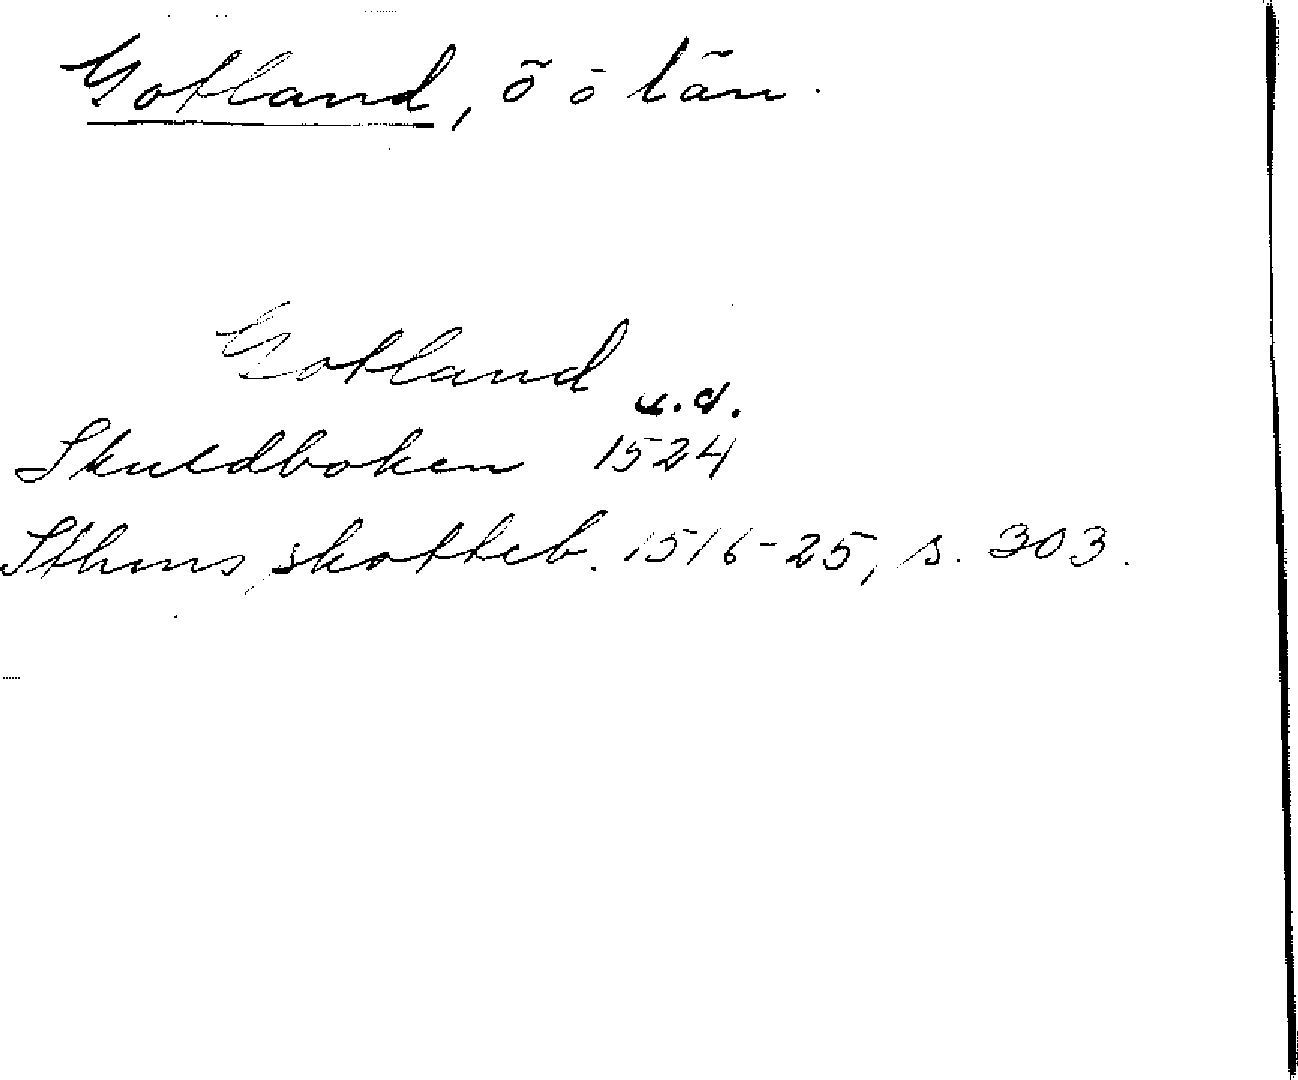 Gotland, ö o län.
Gotland
u.d.
Skuldboken 1524
Sthms skotteb. 1516-25, s. 303.